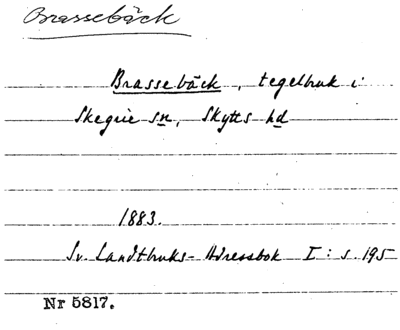 Brassebäck
Brassebäck, tegelbruk i
Skegrie sn, Skytts hd
1883.
Sv. Landtbruks-Adressbok I: s. 195
Nr 5817.